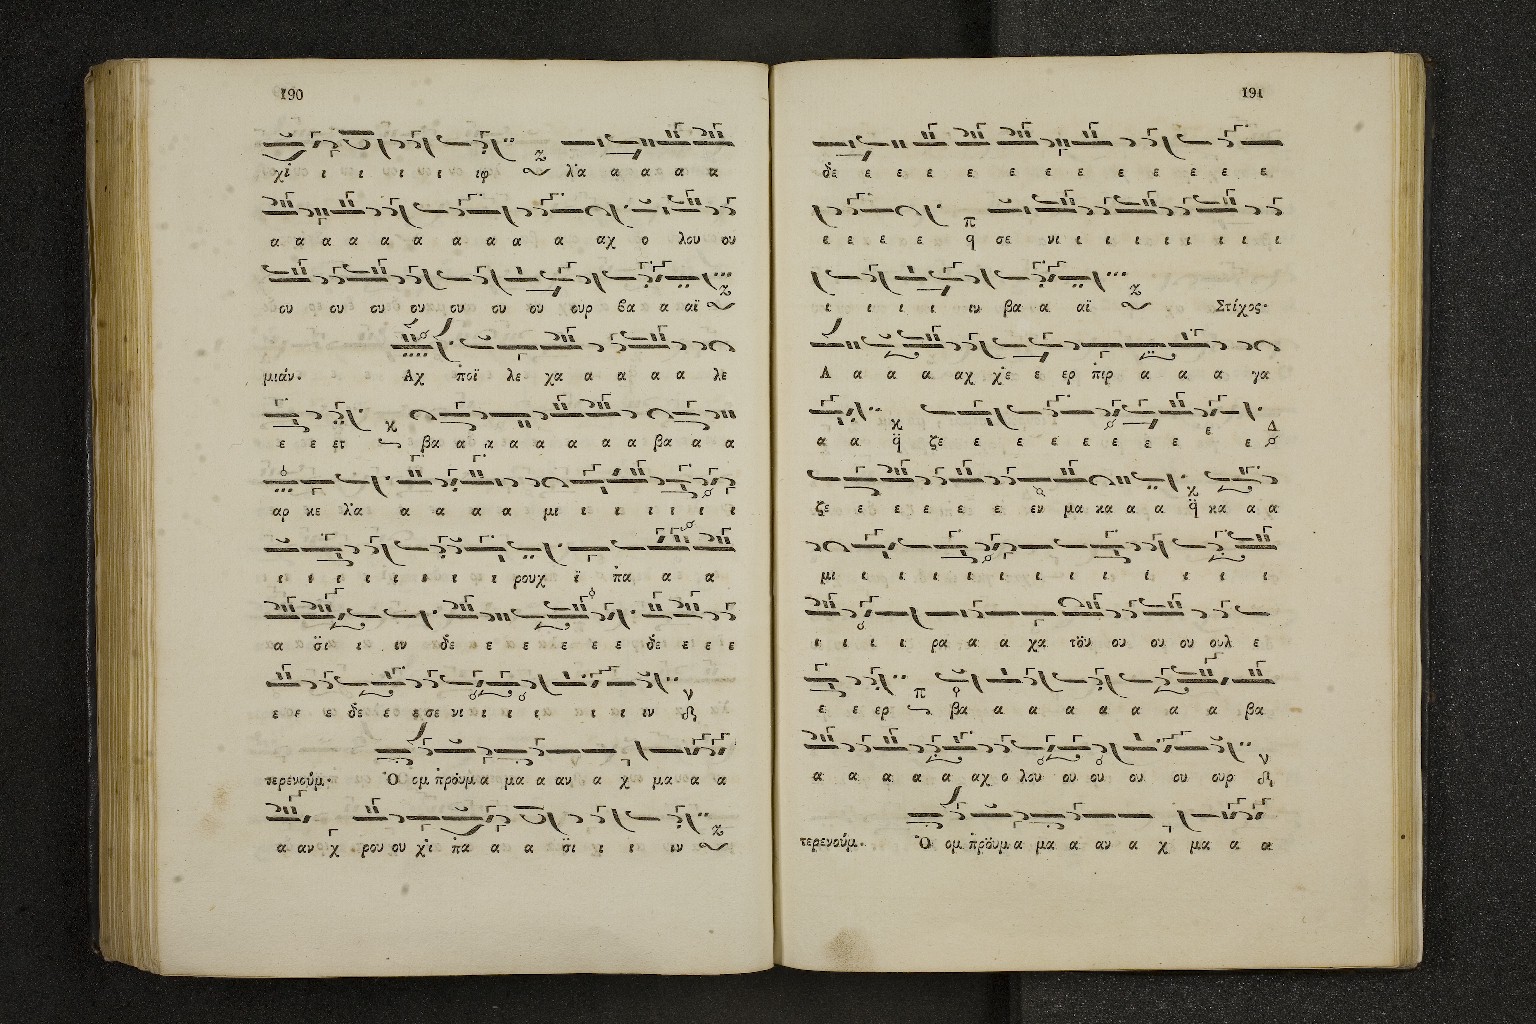 190
χὶ ι ι ι ι ι ιφ λ̇α α α α α
α α α α α α α α α α αχ ο λου ου
ου ου ου ου ου ου ου ουρ βα α αϊ
μιάν. Αχ π̇οϊ λε χα α α α α λε
ε ε ετ βα α α α α α α α βα α α
αρ κε λ̇α α α α α μι ι ι ι ι ι
ι ι ι ι ι ι ι ι ρουχ ϊ π̇α α α
α σ̈ι ι ιν δ̇ε ε ε ε ε ε δ̇ε ε ε ε
ε ε ε δ̇ε ε ε σε νι ι ι ι ι ι ιν
τερενούμ. Ὀ ομ π̇ρ̈ουμ α μα α αν α χ μα α α
α αν χ ρου ου χ̇ι π̇α α α σ̈ι ι ι ιν
191
δ̇ε ε ε ε ε ε ε ε ε ε ε ε ε
ε ε ε ε π q σε νι ι ι ι ι ι ι ι
ι ι ι ι ιν βα α αϊ Στίχος.
Α α α α αχ χ̇ε ε ερ π̇ιρ α α α γα
α α q̈ ζε ε ε ε ε ε ε ε ε ε
ζε ε ε ε ε ε εν μα κα α α q̈ κα α α
μι ι ι ι ι ι ι ι ι ι ι ι ι
ι ι ι ι ρα α α χα τ̈ου ου ου ου ουλ ε
ε ε ερ βα α α α α α α α βα
α α α α α αχ ο λου ου ου ου ου ουρ
τερενούμ. Ὀ ομ π̇ρ̈ουμ α μα α αν α χ μα α α